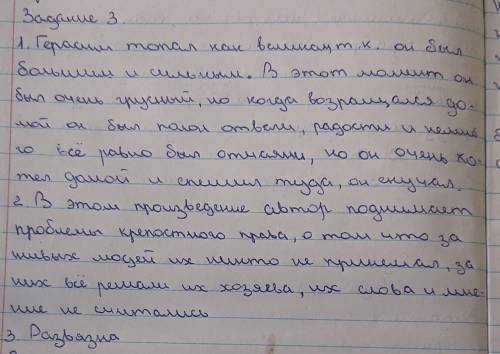 Задание 3
1. Герасим топал как великан т.к. он был
большим и сильным. В этот момент он
был очень грусный, но когда возращался до-
мой он был полон отвели, радости и немно
го всё равно был отчаяни, но он очень хо-
тел домой и спешил туда, он скучал.
2. В этом произведение автор поднимает
проблемы крепостного права, о том что за
живых людей их никто не принемал, за
них всё решали их хозяева, их слова и мне-
ние не считались
3. Развязна